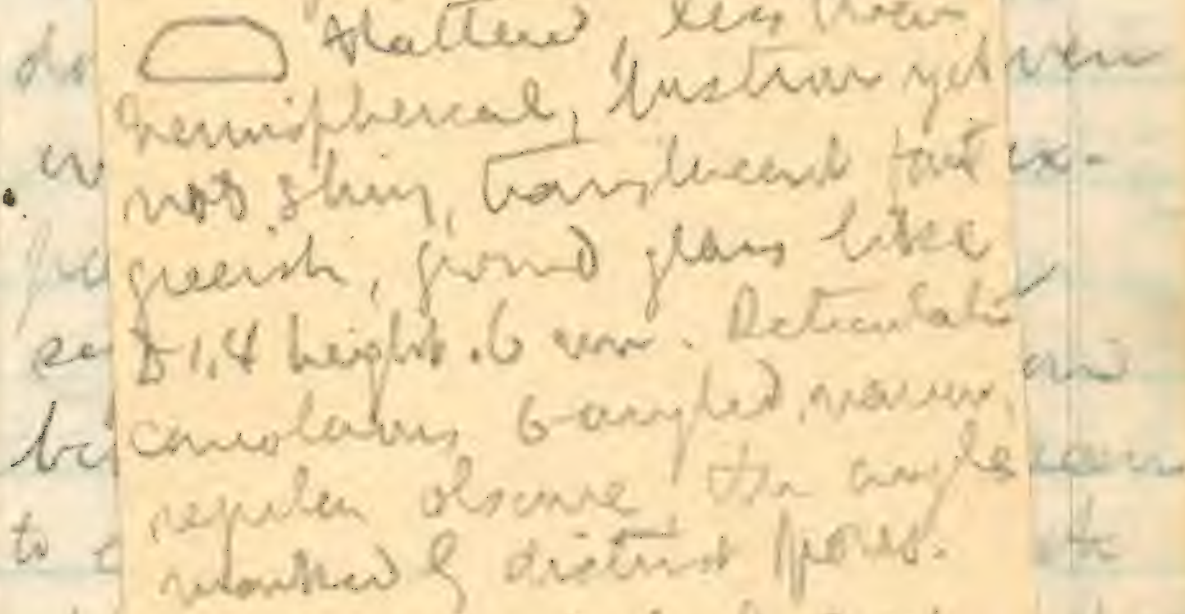 flattened, less than
hemispherical, lustrous yet
not shiny, translucent faint
greenish, ground glass like
D 1.4 height .6 mm. Reticulations
6-angled, narrow,
regular obscure the angles
marked by distinct pores.